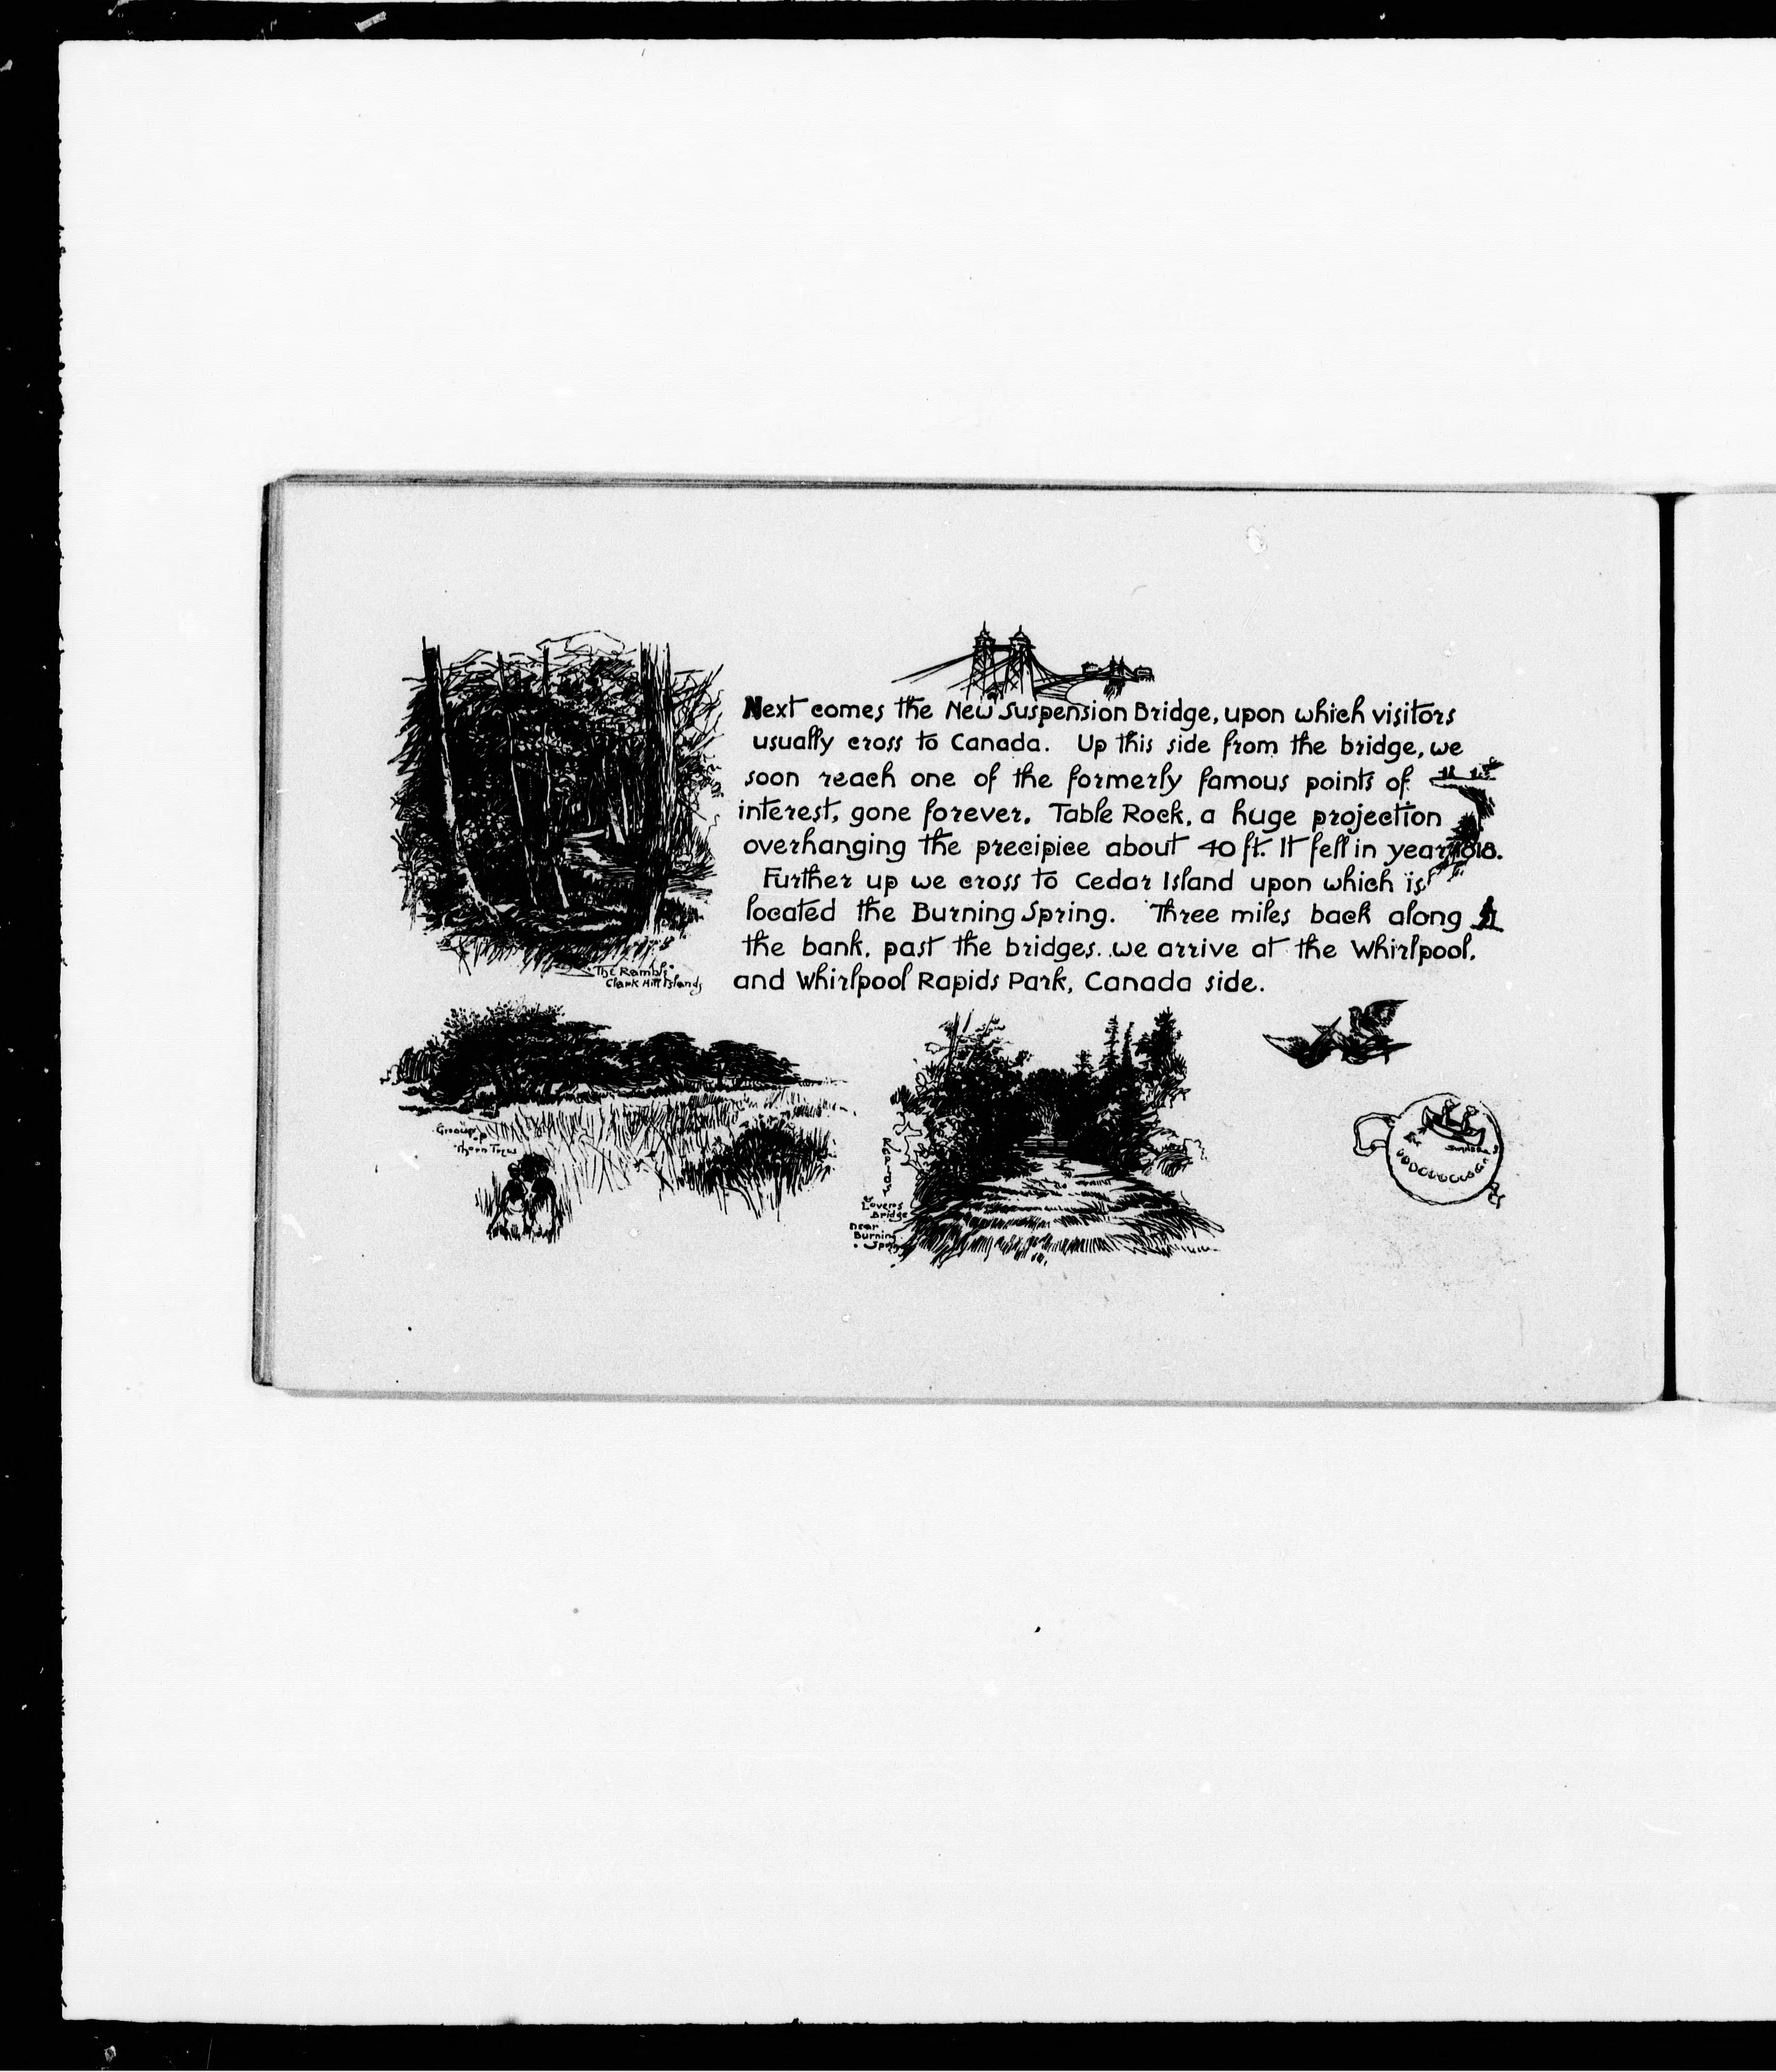 Next comes the New Suspension Bridge, upon which visitors
usually cross to Canada. Up this side from the bridge, we
soon reach one of the formerly famous points of
interest, gone forever. Table Rock, a huge projection
overhanging the precipice about 40 ft. It fell in year 1818.
Further up we cross to Cedar Island upon which is
located the Burning Spring. Three miles back along
the bank, past the bridges. we arrive at the Whirlpool,
and Whirlpool Rapids Park, Canada side.
The Ramble
Clark Hill Islands
Group of
Thorn Trees
Rapids
&
Lovers
Bridge
near
Burning
Spring